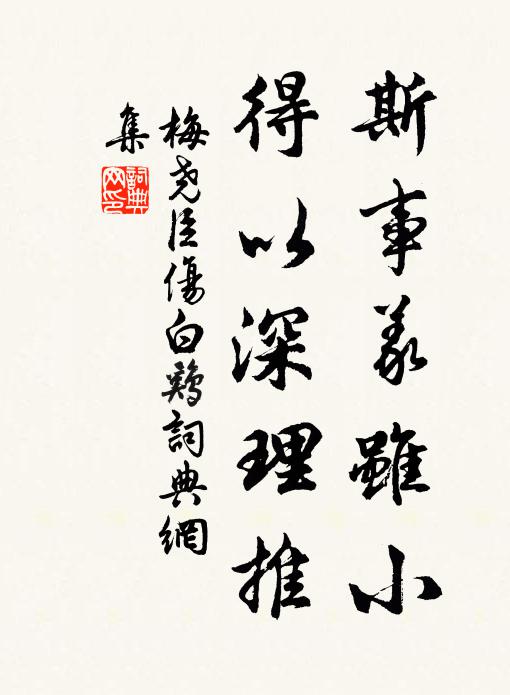 斯事義雖小
得以深理推
梅堯臣傷白鷄詞典網
集
詞典網印